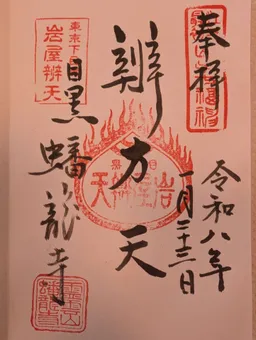 奉拝
令和八年
一月二十三日
辨才天
岩屋辨天
東京下
岩屋辨天
目黒蟠龍寺